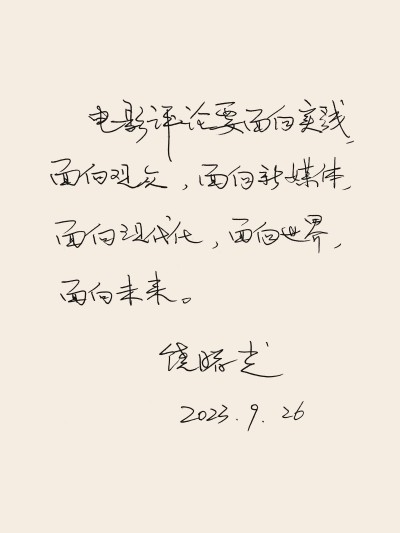 电影评论要面向实践,
面向观众，面向新媒体,
面向现代化，面向世界，
面向未来。
饶曙光
2023.9.26